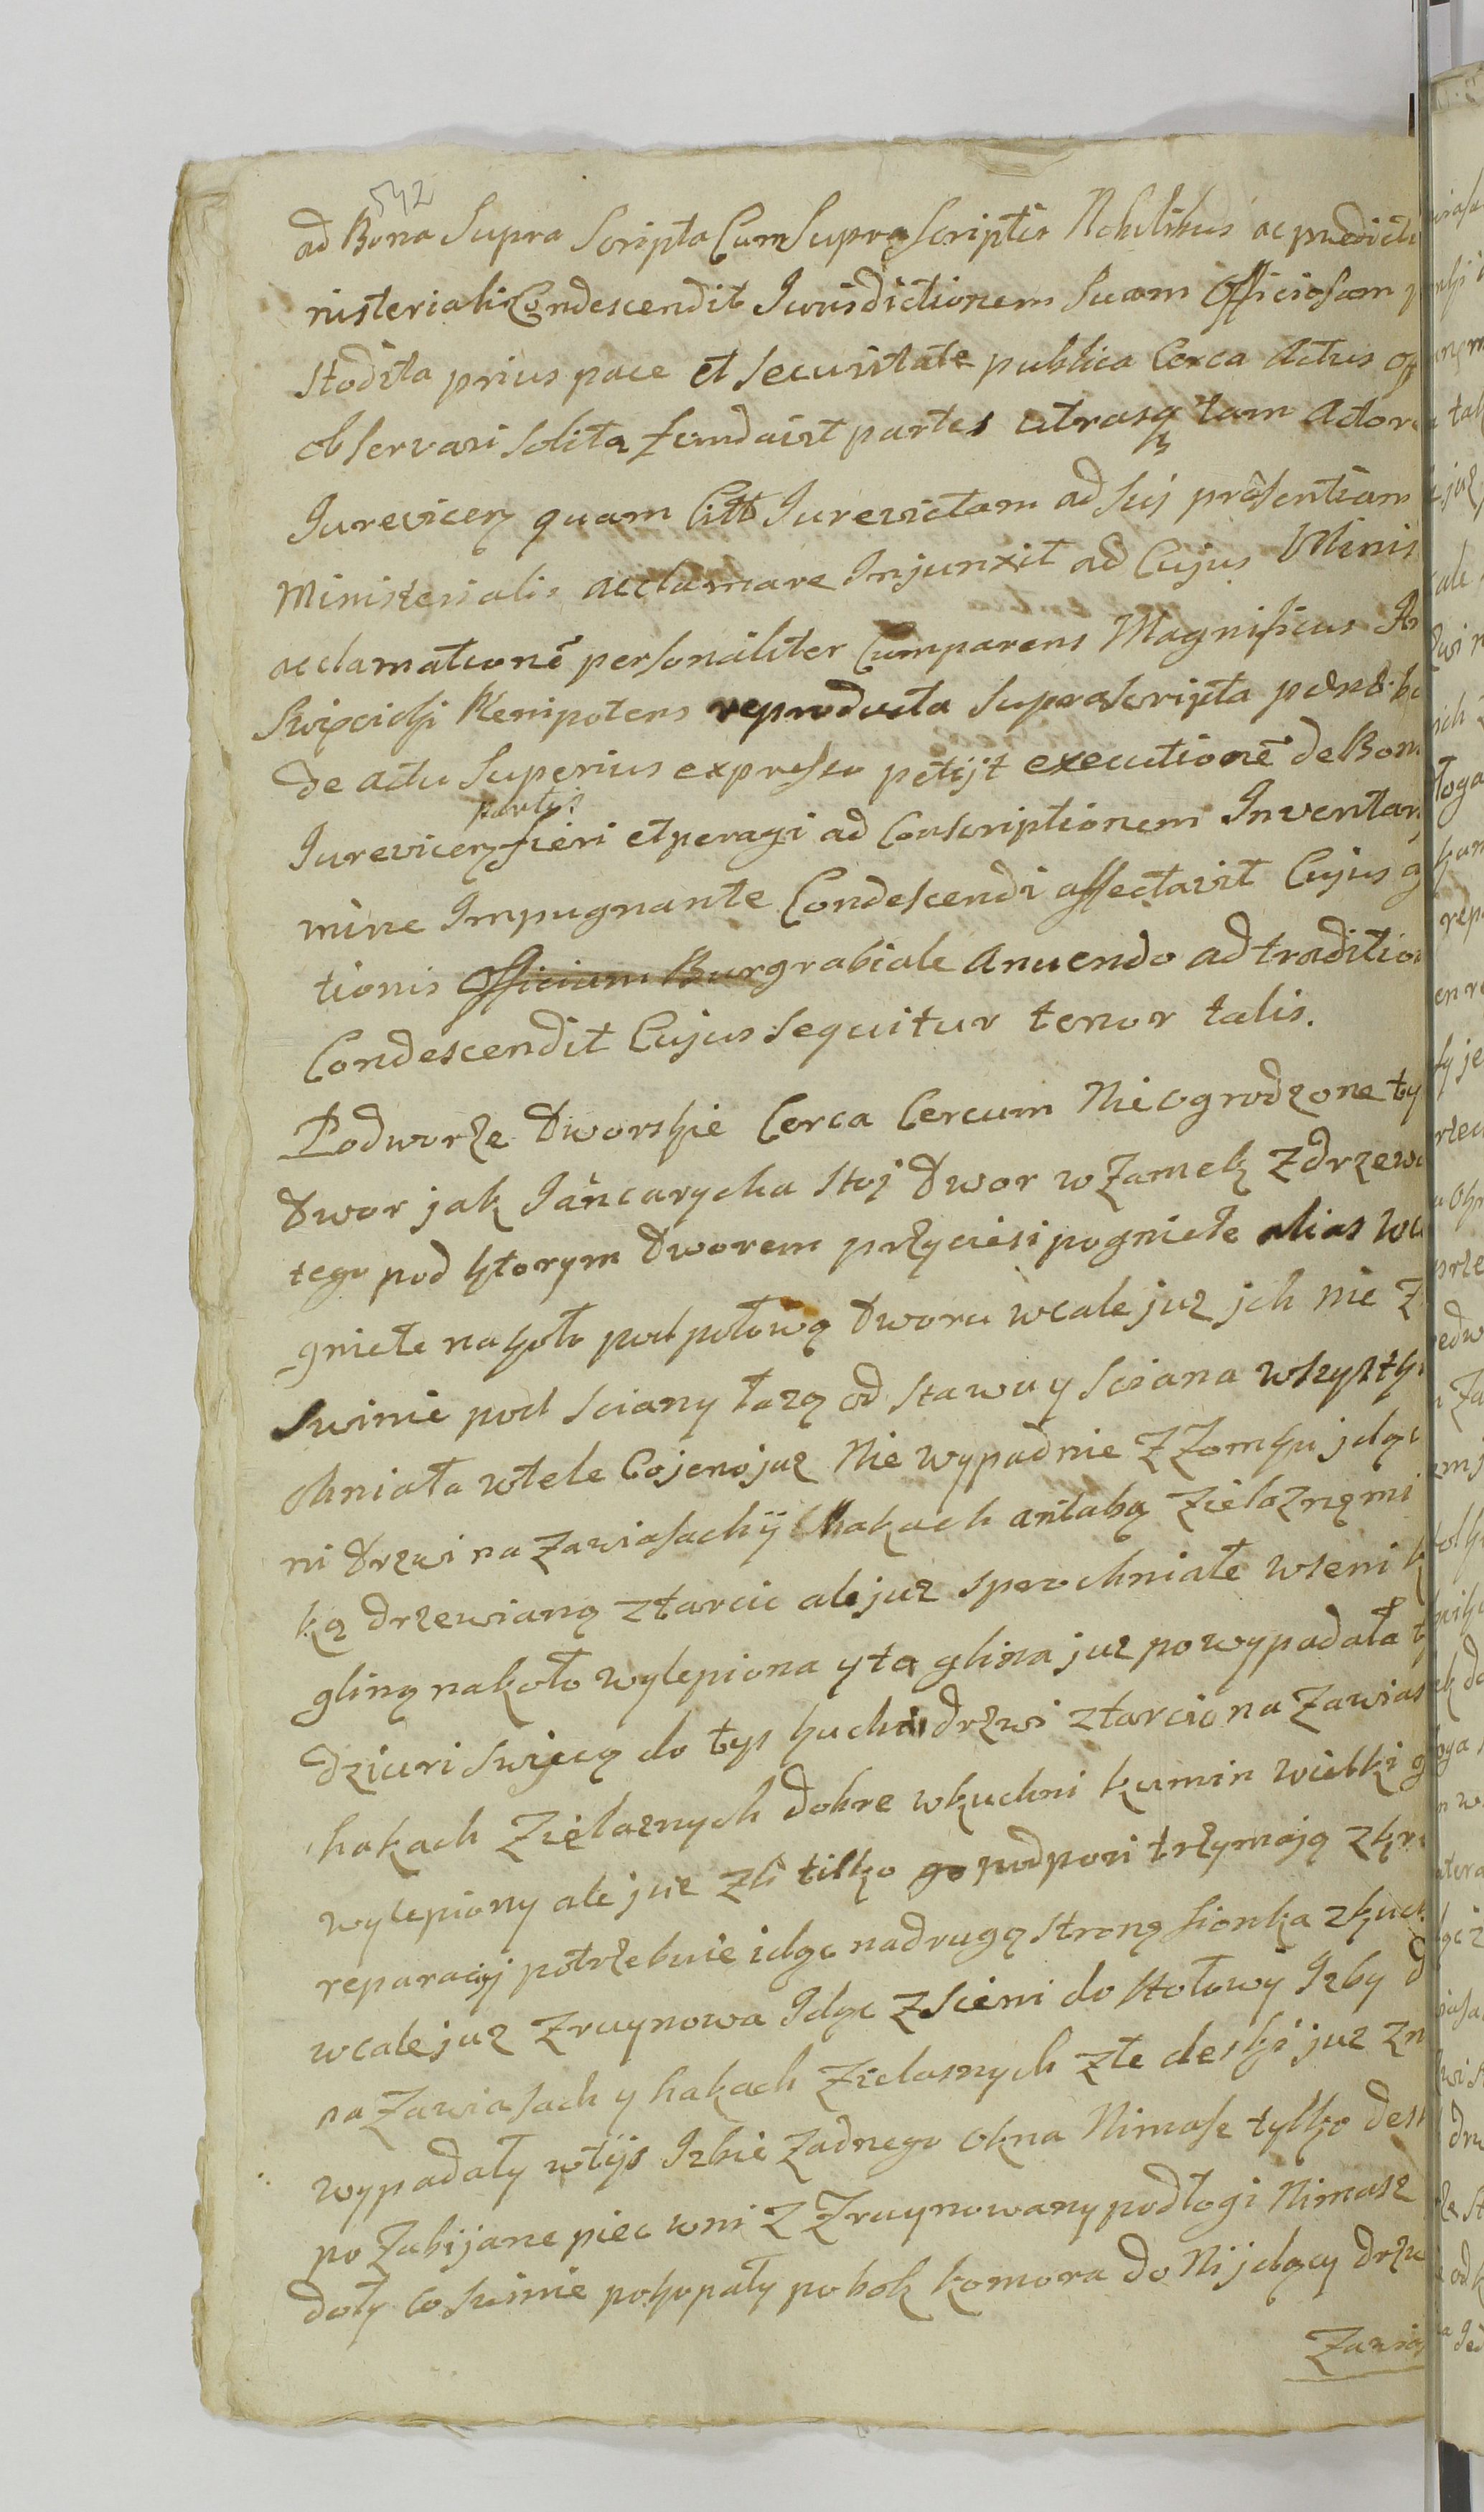 542
ad Bona Supra Scripta Cum Suprascriptis Nobilibus ac prædicto
nisteriali Condescendit Jurisdictionem Suam Officiosam
stodita prius pace et securitate publica Cerca Actus off
observari solita fundavit partes utrasq tam Actor
Jurevicen quam Citt Jurevictam ad Sui præsentiam
Ministerialis acclamare Injunxit ad Cujus Minis
acclamationē personaliter Comparens Magnificus
Swięcicki Plenipotens reproducta Suprascripta
de actu Superius expresso petijt executionē de Bon
partis
Jurevicen fieri et peragi ad Conscriptionem Inventar
mine Impugnante Condescendi affectavit Cujus
tionis Officium Burgrabiale Anuendo ad tradition
Condescendit Cujus Sequitur tenor talis.
Podwurze Dworskie Cerca Cercum Nie ogrodzone ty
Dwor jak Jancarycha Stoj Dwor w Zamek z drzewa
tego pod ktorym Dworem przyciesi pogniełe alias
gniełe nakoło pod połową Dworu wcale juz jch nie
Swinie pod Sciany łazą od Stawu y Sciana wszystk
chniała wtele Co jeno juz Nie wypadnie Z Zomku jdąc
ni Drzwi na Zawiasach ÿ Hakach antabą Zielozną mi
ką drzewianą ztarcic ale juz sperochniałe wseni
gliną nakoło wylepiona y ta glina juz powypadała
dziuri Swięcą do tyj kuchni drzwi ztarcic na Zawias
hakach Zielaznych dobre wkuchni kumin wielki
wylepiony ale juz Zli tilko go podpori trzymają
reparacyj potrzebuie idąc nadrugą Stroną Sionka zkuch
wcale juz Zruynowa Jdąc z Sieni do Stołowy Jzby
na Zawiasach y hakach Zielasnych złe deski juz
wypadały wtÿs Jzbie Zadnego okna Nimasz tylko des
po Zabijane piec wni Z Zruynowany podłogi Nimasz
doły Co Swinie pokopały po bok komora do Ni jdący drzw
Zawias